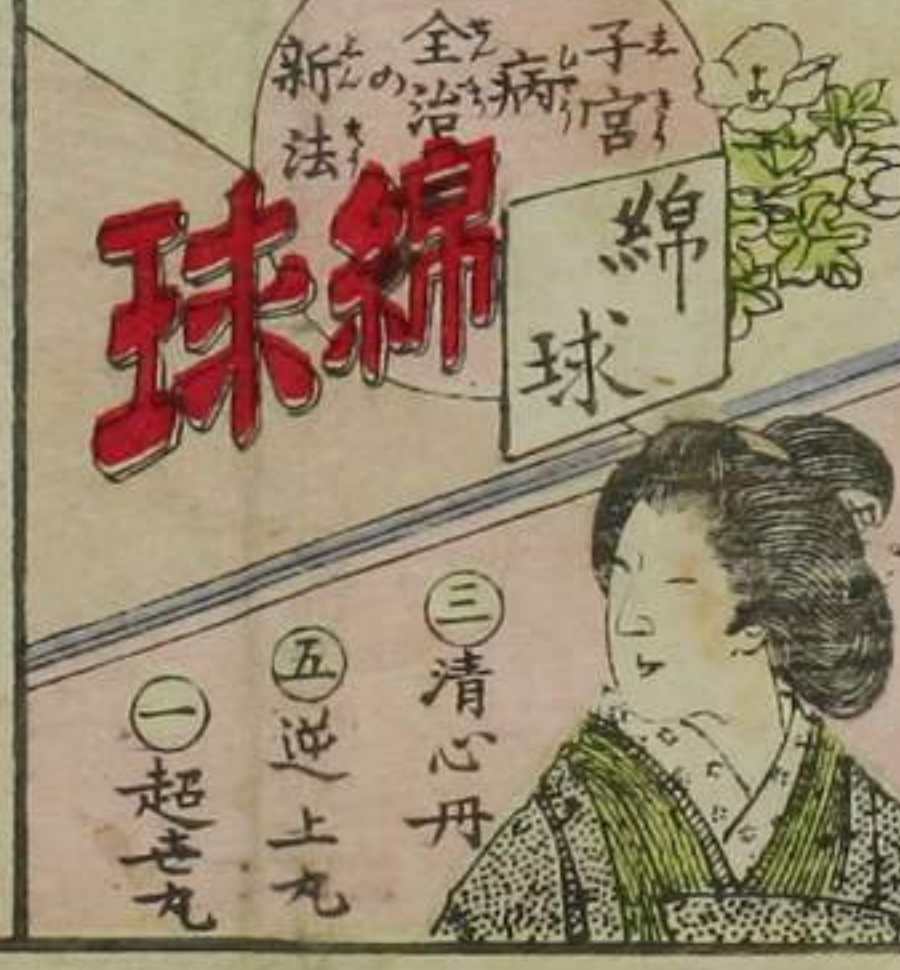 子宮病
全治の
新法
綿球
綿球
三 清心丹
五 逆上丸
一 超世丸